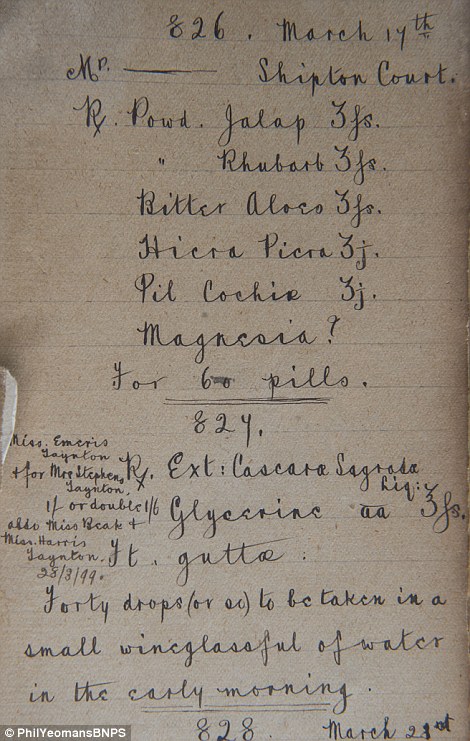 826. March 17th
Mr. —— Shipton Court.
℞. Powd. Jalap ʒfs.
" Rhubarb ʒfs.
Bitter Aloes ʒfs.
Hiera Picra ʒj.
Pil Cochiæ ʒj.
Magnesia?
For 60 pills.
827.
Miss. Emeris
Taynton
+ for Mrs Stephens,
Taynton,
1/ or double 1/6
also Miss Beak +
Miss. Harris
Taynton.
28/3/99.
℞. Ext: Cascaræ Sagrada
Liq:
Glycerine aa ʒfs.
Ft. guttæ.
Forty drops (or so) to be taken in a
small wineglassful of water
in the early morning.
828. March 21st
© PhilYeomansBNPS